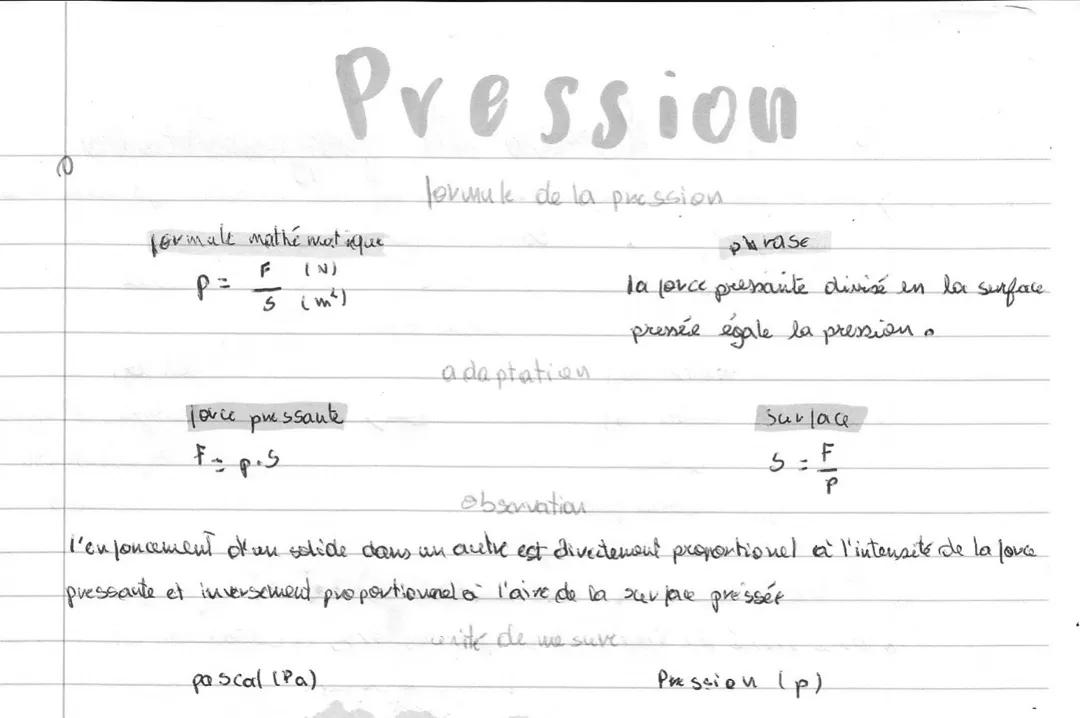 Pression
formule de la pression
formule mathématique
phrase
p = F (N)
S (m²)
la force pressante divisé en la surface
pressée égale la pression.
adaptation
force pressante
surface
F = p.S
S = F
P
observation
l'enfoncement d'un solide dans un autre est directement proportionel à l'intensité de la force
pressante et inversement proportionnel à l'aire de la surface pressée
unité de mesure
pascal (Pa)
Pression (p)